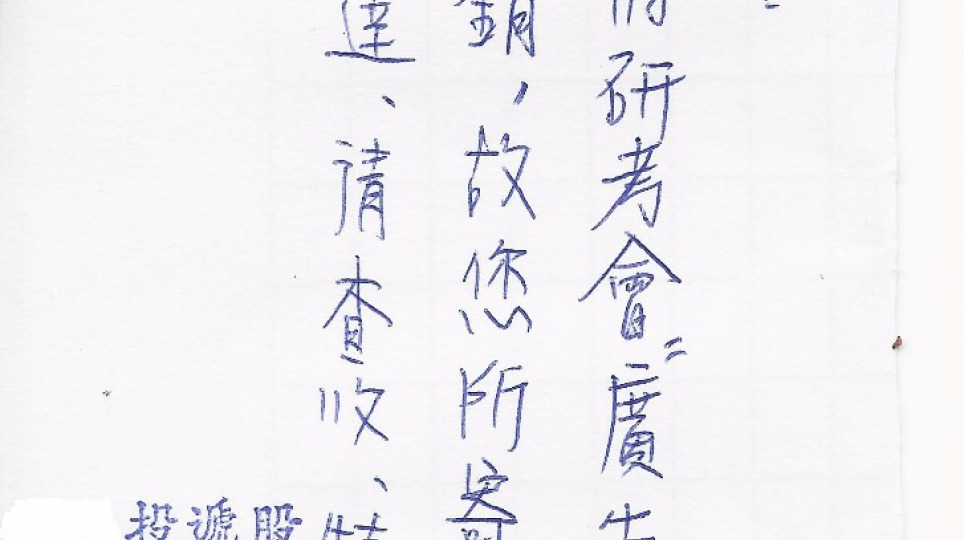 研考會〞廣告
銷，故您所寄
達、請查收、特
投遞股